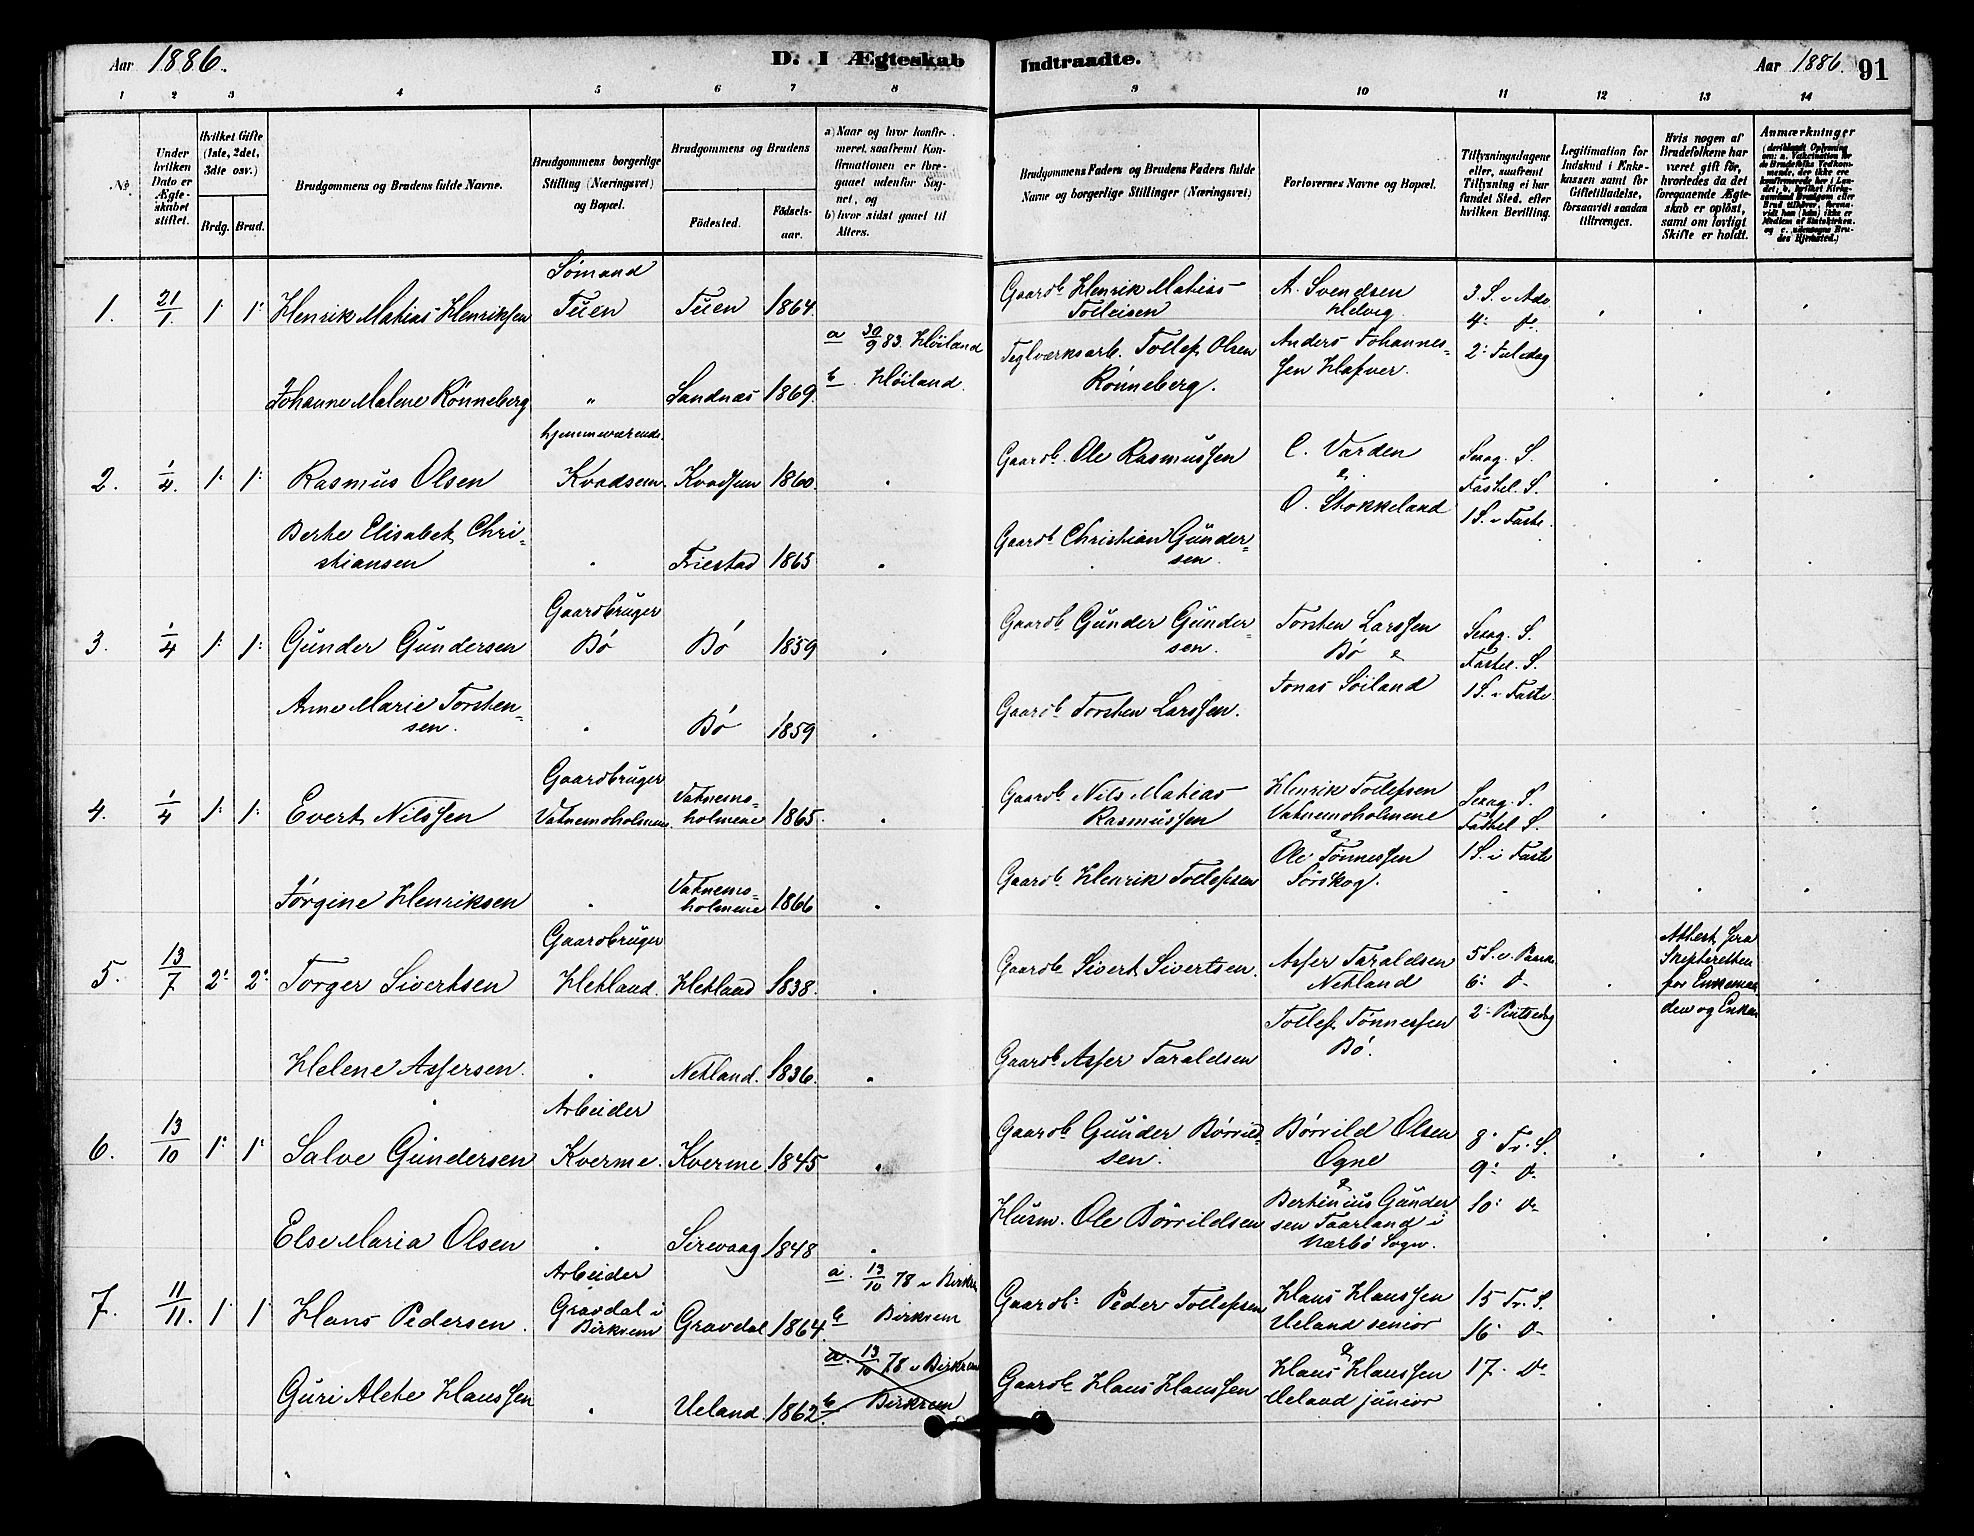 Aar 1886.
D. I Ægteskab Indtraadte.
Aar 1886. 91
1 2 3 4 5 6 7 8 9 10 11 12 13 14
No.
Under hvilken Dato er Ægteskabet stiftet.
Hvilket Gifte (1ste, 2det, 3die osv.)
Brdg. Brud.
Brudgommens og Brudens fulde Navne.
Brudgommens borgerlige Stilling (Næringsvei) og Bopæl.
Brudgommens og Brudens
Födested.
Födselsaar.
a) Naar og hvor konfirmeret, saafremt Konfirmationen er foregaaet udenfor Sognet, og
b) hvor sidst gaaet til Alters.
Brudgommens Faders og Brudens Faders fulde Navne og borgerlige Stillinger (Næringsvei)
Forlovernes Navne og Bopæl.
Tillysningsdagene eller, saafremt Tillysning ei har fundet Sted, efter hvilken Bevilling.
Legitimation for Indskud i Enkekassen samt for Giftetilladelse, forsaavidt saadan tiltrænges.
Hvis nogen af Brudefolkene har været gift før, hvorledes da det foregaaende Ægteskab er oplöst, samt om lovligt Skifte er holdt.
Anmærkninger
1. 21/1. 1. 1. Henrik Matias Henriksen
Sømand
Tuen Tuen 1864.
Gaardb. Henrik Matias
Tolleisen
A. Svendsen
Helvig.
3 S. i Adv
4. D.
2. Juledag
Johanne Malene Rønneberg
" Sandnæs 1869.
a 30/9 83. Høiland
b. Høiland.
Teglværksarb. Tollef Olsen
Rønneberg.
Anders Johannes-
sen Hafver.
2. 1/4. 1. 1. Rasmus Olsen
hjemmeværende.
Kvadsem. Kvadsem 1860.
Gaardb. Ole Rasmussen
C. Varden
&
O. Stokkeland
Sexag. S.
Fastel. S.
1 S. i Faste.
Berte Elisabet Chri-
stiansen
Friestad 1865
Gaardb. Christian Gunder-
sen.
3. 1/4 1. 1. Gunder Gundersen
Gaardbruger
Bø Bø 1859
Gaardb. Gunder Gunder-
sen.
Torsten Larssen
Bø &
Jonas Søiland
Sexag. S.
Fastel. S.
1 S. i Faste.
Anne Marie Torsten-
sen.
Bø 1859
Gaardb. Torsten Larssen.
4. 1/4 1. 1. Evert Nilssen
Gaardbruger
Vatnemoholmene. Vatnemo-
holmene 1865.
Gaardb. Nils Matias
Rasmussen
Henrik Tollefsen
Vatnemoholmene
&
Ole Tønnessen
Sørskog.
Sexag. S.
Fastel S.
1 S. i Faste
Jørgine Henriksen
Vatnemo-
holmene 1866
Gaardb. Henrik Tollefsen
5. 13/7 2. 2. Torger Sivertsen
Gaardbruger
Hetland. Hetland 1838.
Gaardb. Sivert Sivertsen.
Asser Taraldsen
Netland
Tollef Tønnessen
Bø.
5 S. e. Paask.
6. D.
2. Pintsedag
Attest fra
Skifteretten
for Enkeman
den og Enken
Helene Assersen.
Netland. 1836.
Gaardb. Asser Taraldsen
6. 13/10 1. 1. Salve Gundersen
Arbeider
Kverme. Kverme 1845
Gaardb. Gunder Børrild-
sen.
Børrild Olsen
Ogne
&
Bertinius Gunder
sen Taarland i
Nærbø Sogn.
8. Tr. S.
9. D.
10. D.
Else Maria Olsen
Sirevaag 1848
Husm. Ole Børrildsen
7. 11/11. 1. 1. Hans Pedersen.
Arbeider
Gravdal i
Birkrem
Gravdal 1864.
a. 13/10 78 i Birkrem
b Birkrem
Gaardb. Peder Tollefsen
Hans Hanssen
Ueland senior
&
Hans Hanssen
Ueland junior
15 Tr. S.
16. D.
17. D.
Guri Alete Hanssen
Ueland. 1862.
a. 13/10 78 i Birkrem
b. Birkrem
Gaardb. Hans Hanssen